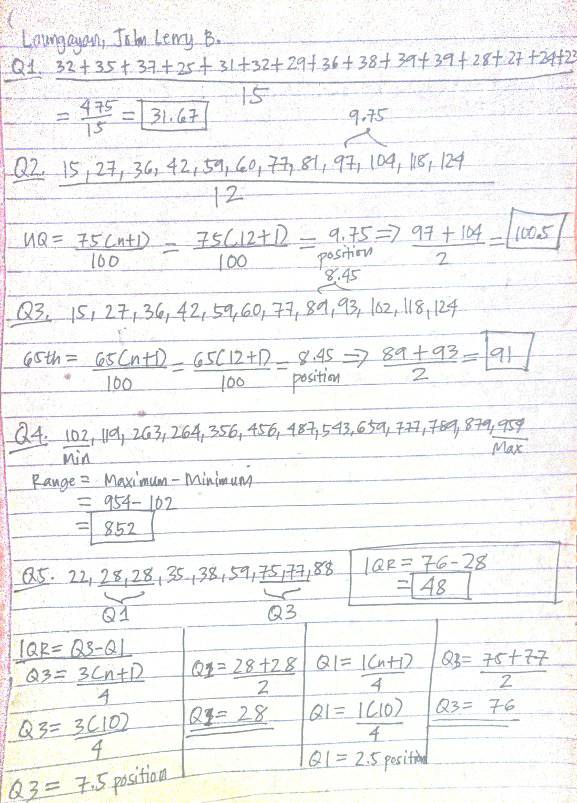 Laungayan, John Lerry B.
Q1. 32+35+37+25+31+32+29+36+38+39+39+28+27+24+23
15
= 475/15 = 31.67
9.75
Q2. 15, 27, 36, 42, 59, 60, 77, 81, 97, 104, 118, 124
12
UQ = 75(n+1)/100 = 75(12+1)/100 = 9.75 position => 97+104/2 = 100.5
8.45
Q3. 15, 27, 36, 42, 59, 60, 77, 89, 93, 102, 118, 124
65th = 65(n+1)/100 = 65(12+1)/100 = 8.45 position => 89+93/2 = 91
Q4. 102, 119, 263, 264, 356, 456, 487, 543, 659, 777, 789, 879, 954
Min Max
Range = Maximum - Minimum
= 954-102
= 852
Q5. 22, 28, 28, 35, 38, 59, 75, 77, 88
Q1 Q3
IQR = 76-28
= 48
IQR = Q3-Q1
Q3 = 3(n+1)/4
Q3 = 3(10)/4
Q3 = 7.5 position
Q1 = 28+28/2
Q1 = 28
Q1 = 1(n+1)/4
Q1 = 1(10)/4
Q1 = 2.5 position
Q3 = 75+77/2
Q3 = 76